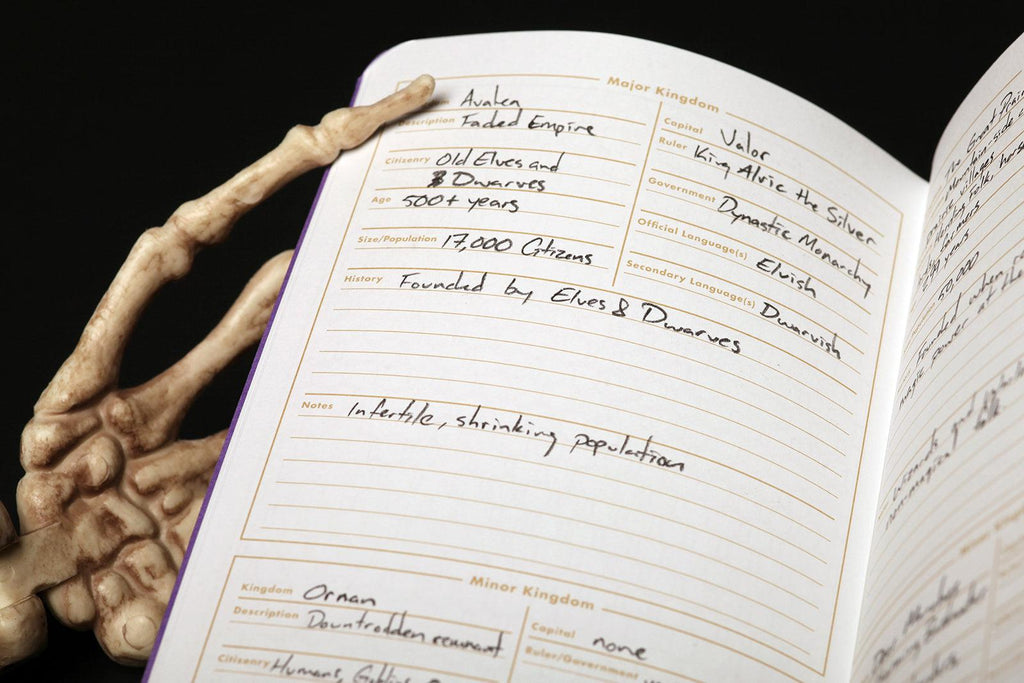 Major Kingdom
Avalen
Description Faded Empire
Citizenry Old Elves and
& Dwarves
Age 500+ years
Size/Population 17,000 Citizens
Capital Valor
Ruler King Alvic the Silver
Government Dynastic Monarchy
Official Language(s) Elvish
Secondary Language(s) Dwarvish
History Founded by Elves & Dwarves
Notes Infertile, shrinking population
Minor Kingdom
Kingdom Ornan
Description Downtrodden remnant
Citizenry Humans, Goblins
Capital none
Ruler/Government
The Great
mountain-side
villages
folk, horse
farmers
years
50,000
Founded when
magic power at the
Wizards and
non-magical folk